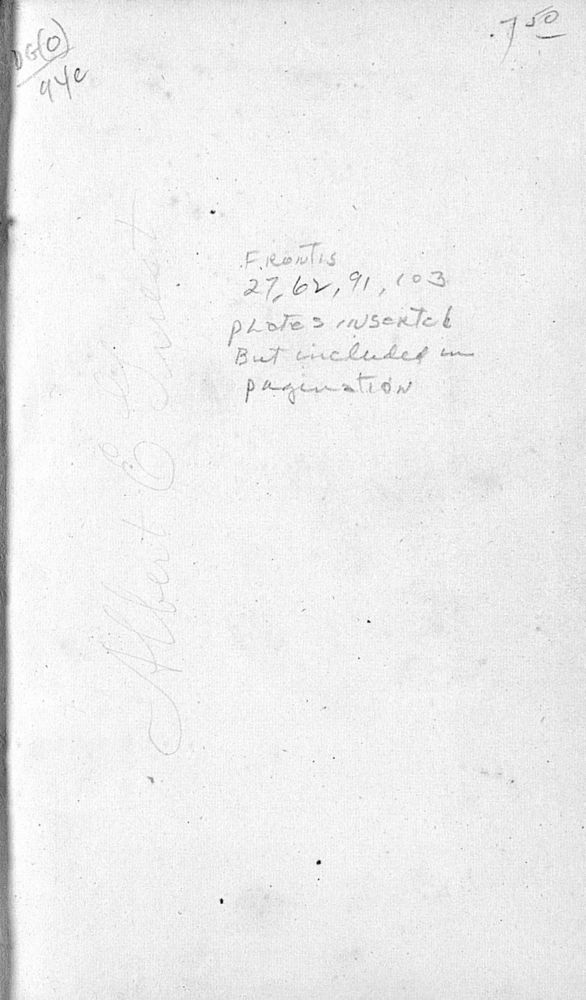 7 50
DG(O)
94c
FRONTIS
27, 62, 91, 103
PLates INSERTed
But included in
pagination
Albert E